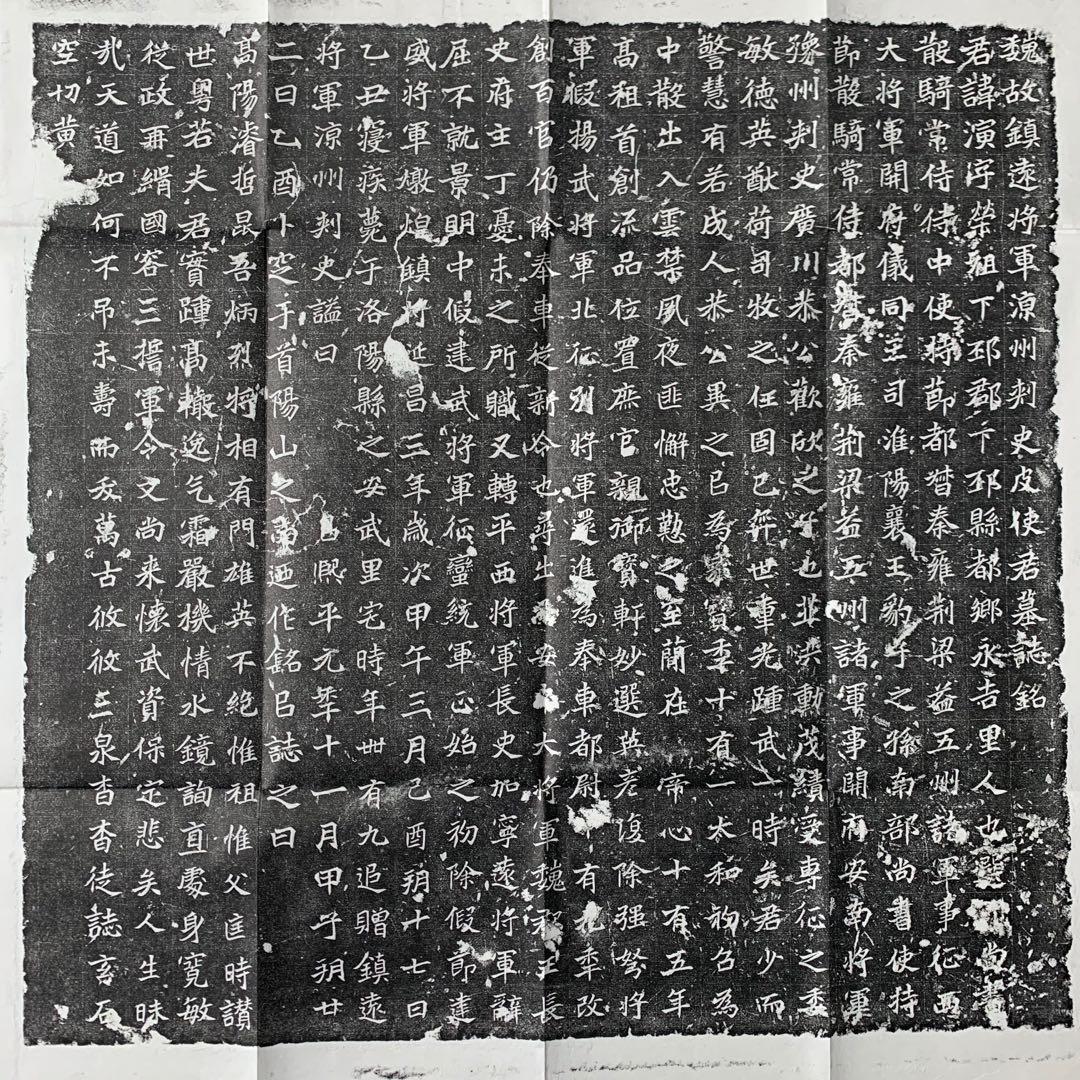 魏故鎮遠將軍涼州刾史皮使君墓誌銘
君諱演字榮祖下邳郡下邳縣都鄉永吉里人也聖朝尚書
散騎常侍侍中使持莭都督秦雍荆梁益五州諸軍事征西
大將軍開府儀同三司淮陽襄王豹子之孫南部尚書使持
莭散騎常侍都督秦雍荆梁益五州諸軍事開府安南將軍
豫州刾史廣川恭公歡欣之子也並樂勳茂績受專征之委
敏徳英猷荷司牧之任固已弈世重光踵武一時矣君少而
警慧有若成人恭公異之以為家寶季十有一太和初召為
中散出入雲禁夙夜匪懈忠懃之至蕳在帝心十有五年
髙祖首創流品位置庶官親御寳軒妙選英彥復除强弩將
軍假揚武將軍北征別將軍還進為奉車都尉十有九秊改
創百官仍除奉車從新令也尋出為安大將軍魏郡王長
史府主丁憂未之所職又轉平西將軍長史加寧遠將軍辭
屈不就景明中假建武將軍征蠻統軍正始之初除假莭建
威將軍燉煌鎮將延昌三年歲次甲午三月己酉朔十七日
乙丑寑疾薨于洛陽縣之安武里宅時年卌有九追贈鎮遠
將軍涼州刾史謚曰　　　　　以熈平元年十一月甲子朔廿
二日乙酉卜窆于首陽山之南迺作銘以誌之曰
髙陽濬哲昆吾炳烈將相有門雄英不絶惟祖惟父匡時讃
世粤若夫君寳踵髙轍逸气霜嚴機情水鏡詢直處身寬敏
從政再緝國容三握軍令文尚来懷武資保定悲矣人生昧
㢤天道如何不弔未壽而夭萬古攸攸三泉杳杳徒誌玄石
空切黄